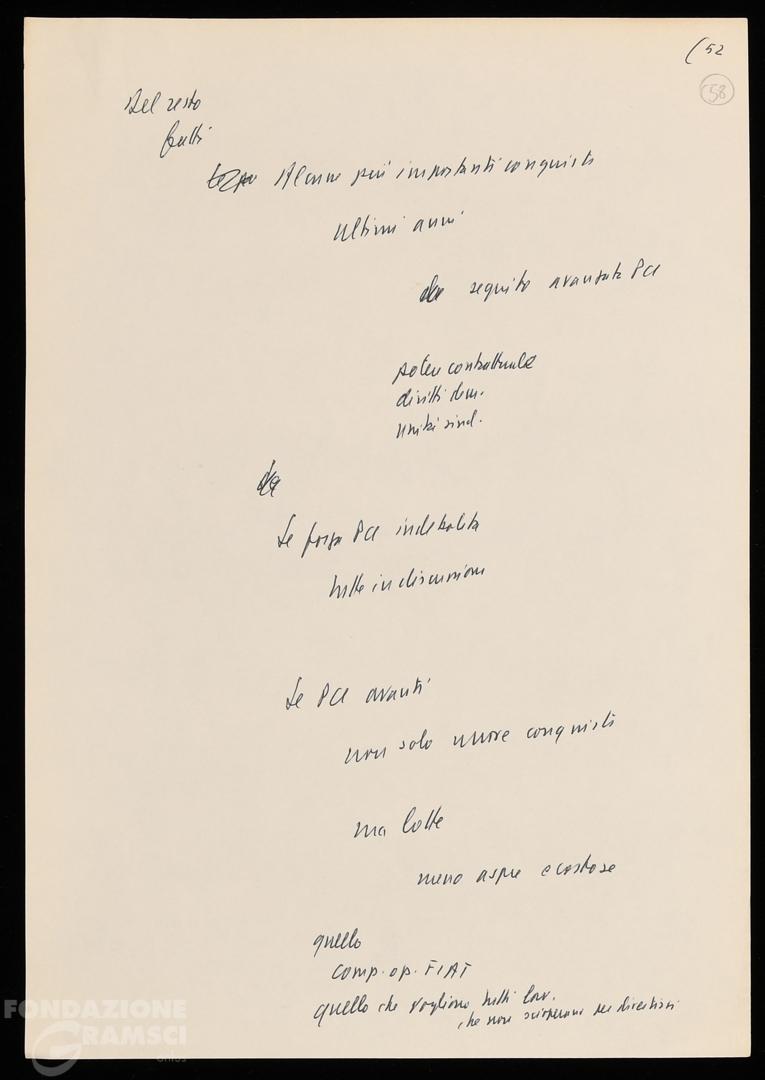 (52
58
Del resto
fatti
Alcune più importanti conquiste
ultimi anni
seguito avanzata PCI
potere contrattuale
diritti dem.
unità sind.
Se forza PCI indebolita
tutte in discussione
Se PCI avanti
non solo nuove conquiste
ma lotte
meno aspre e costose
quello
comp. op. FIAT
quello che vogliono tutti lav.
che non scioperano per divertirsi
FONDAZIONE
GRAMSCI
onlus